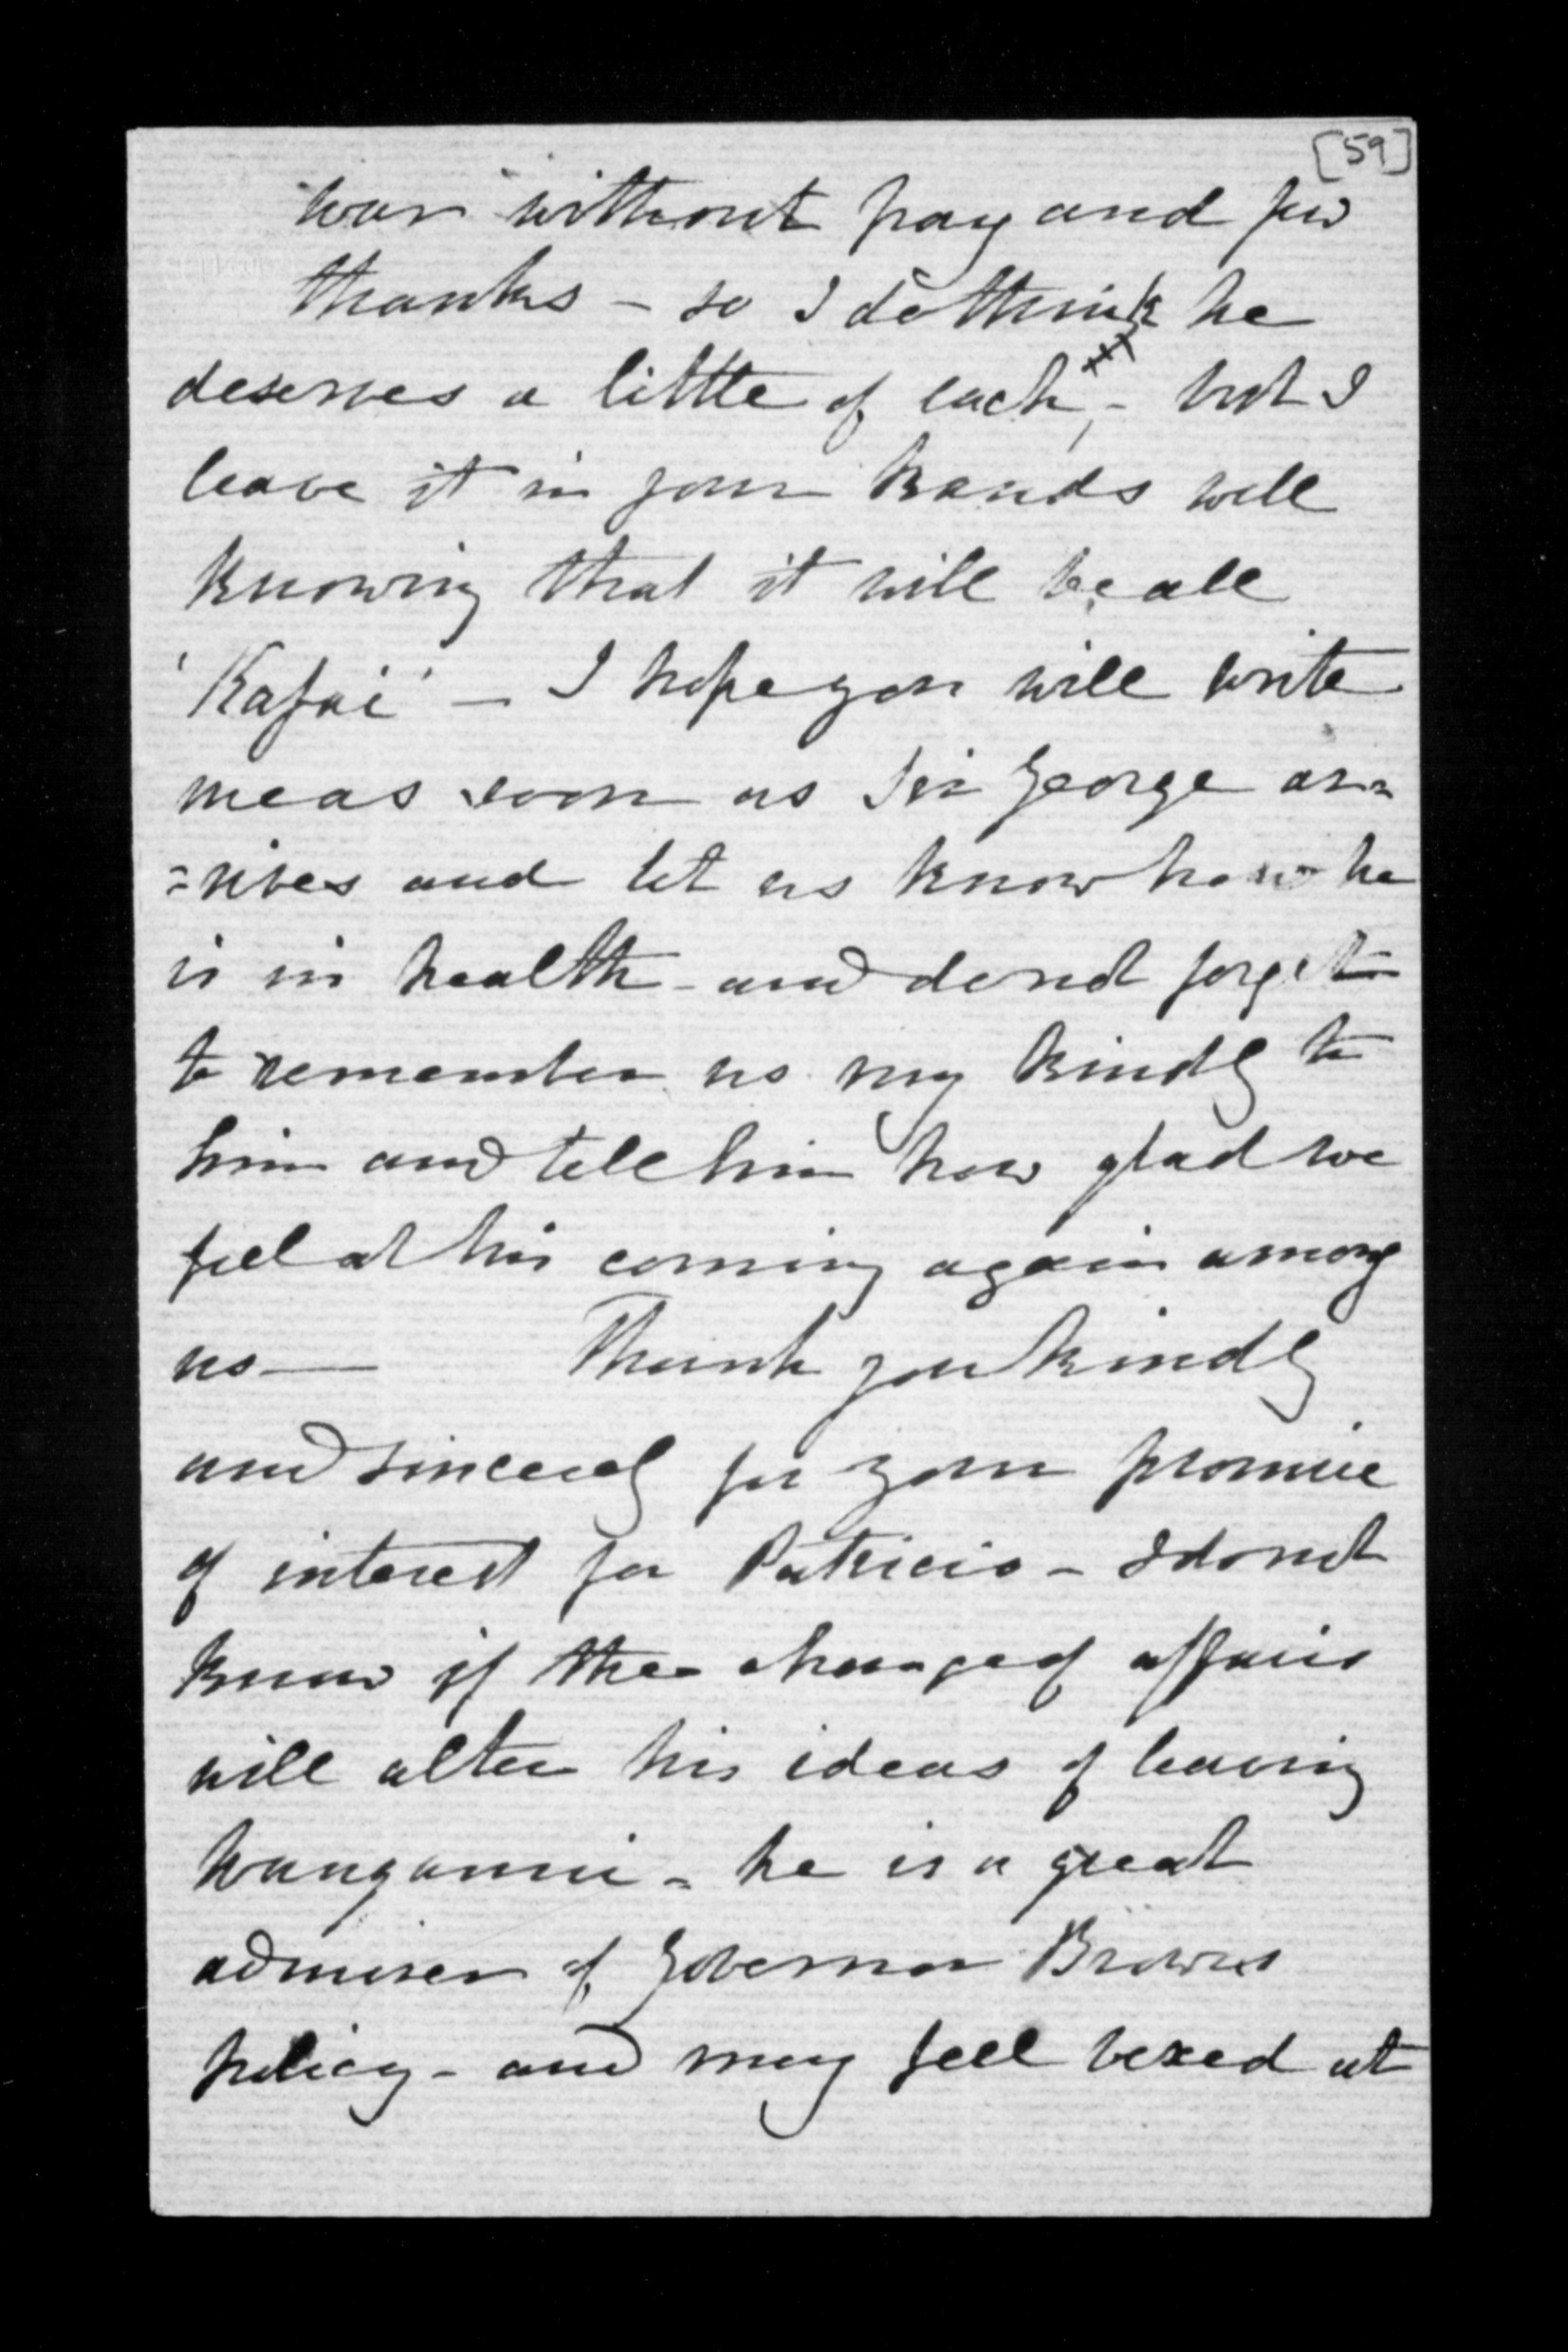 [59]
war without pay and few
thanks - so I do think he
deserves a little of each, - but I
leave it in your hands well
knowing that it will be all
'Kapai' - I hope you will write
me as soon as Sir George ar=
=rives and let us know how he
is in health - and dont forget
to remember us very kindly to
him and tell him how glad we
feel at his coming again among
us - Thank you kindly
and sincerely for your promise
of interest for Patricio - I dont
know if the change of affairs
will alter his ideas of leaving
Wanganui - he is a great
admirer of Governor Browns
policy - and may feel vexed at